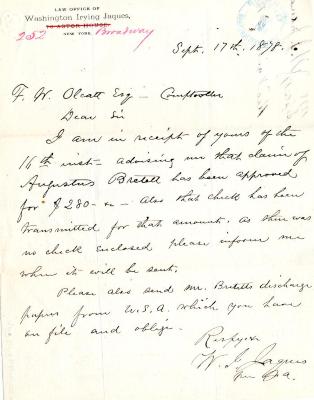 LAW OFFICE OF
Washington Irving Jaques,
10 ASTOR HOUSE,
252 Broadway
NEW YORK,
Sept. 17th 1878.
F. W. Olcott Esq - Comptroller
Dear Sir
I am in receipt of yours of the
16th inst - advising me that claim of
Augustus Bretell has been approved
for $280 - Also that check has been
transmitted for that amount. As there was
no check enclosed please inform me
when it will be sent.
Please also send Mr. Bretells discharge
papers from U.S.A. which you have
on file and oblige.
Respy &c
W. I. Jaques